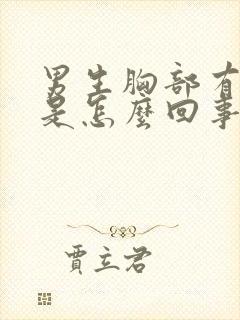 男生胸部有
是怎麼回事
賈立君